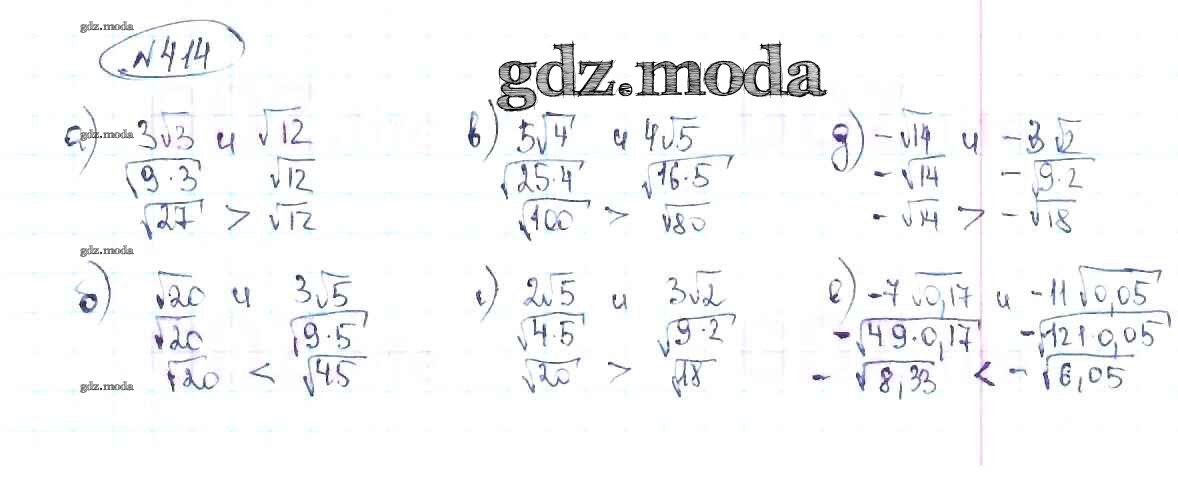 gdz.moda
№414
gdz.moda
а) 3√3 и √12
√9·3 √12
√27 > √12
gdz.moda
в) 5√4 и 4√5
√25·4 √16·5
√100 > √80
д) -√14 и -3√2
-√14 -√9·2
-√14 > -√18
gdz.moda
б) √20 и 3√5
√20 √9·5
√20 < √45
gdz.moda
г) 2√5 и 3√2
√4·5 √9·2
√20 > √18
е) -7√0,17 и -11√0,05
-√49·0,17 -√121·0,05
-√8,33 < -√6,05